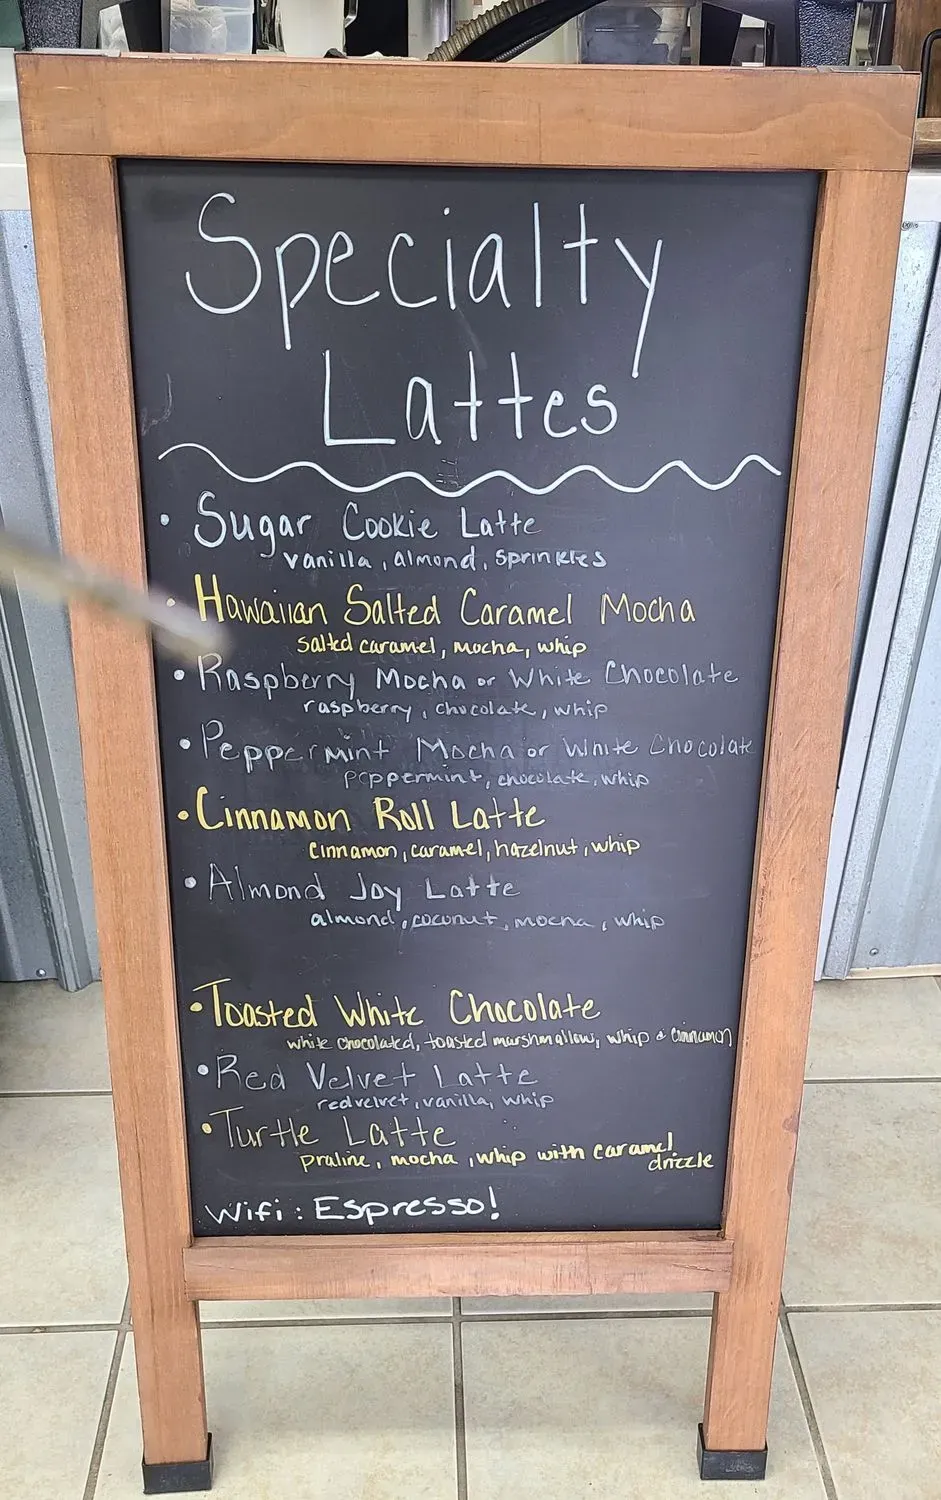 Specialty
Lattes
• Sugar Cookie Latte
vanilla, almond, sprinkles
• Hawaiian Salted Caramel Mocha
salted caramel, mocha, whip
• Raspberry Mocha or White Chocolate
raspberry, chocolate, whip
• Peppermint Mocha or White Chocolate
peppermint, chocolate, whip
• Cinnamon Roll Latte
cinnamon, caramel, hazelnut, whip
• Almond Joy Latte
almond, coconut, mocha, whip
• Toasted White Chocolate
white chocolated, toasted marshmallow, whip & cinnamon
• Red Velvet Latte
redvelvet, vanilla, whip
• Turtle Latte
praline, mocha, whip with caramel
drizzle
Wifi: Espresso!